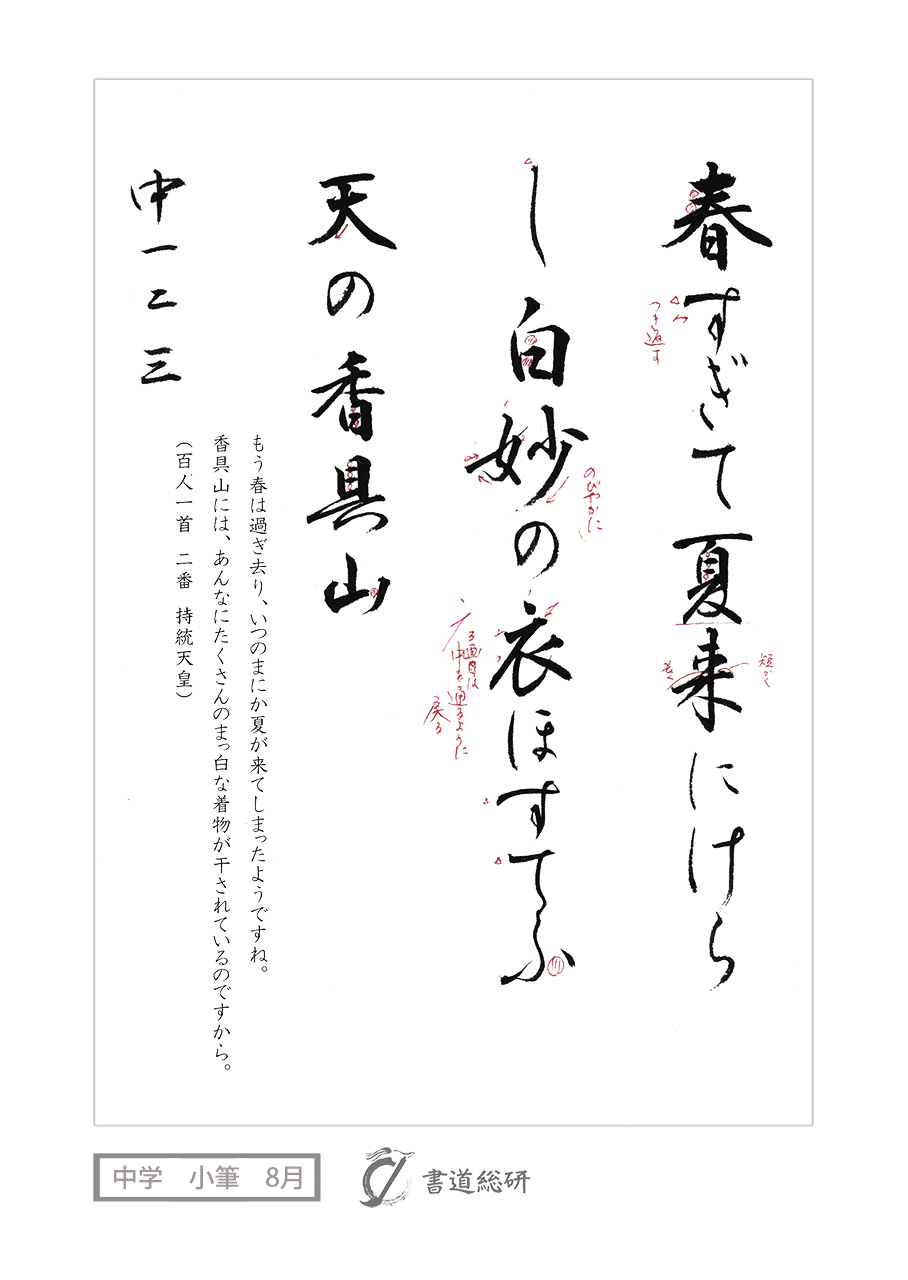 春すぎて夏来にけら
し白妙の衣ほすてふ
天の香具山
中一二三
つき返す
短かく
長く
のびやかに
る画目は
中を通るように
戻る
もう春は過ぎ去り、いつのまにか夏が来てしまったようですね。
香具山には、あんなにたくさんのまっ白な着物が干されているのですから。
（百人一首 二番 持統天皇）
中学 小筆 8月
書道総研